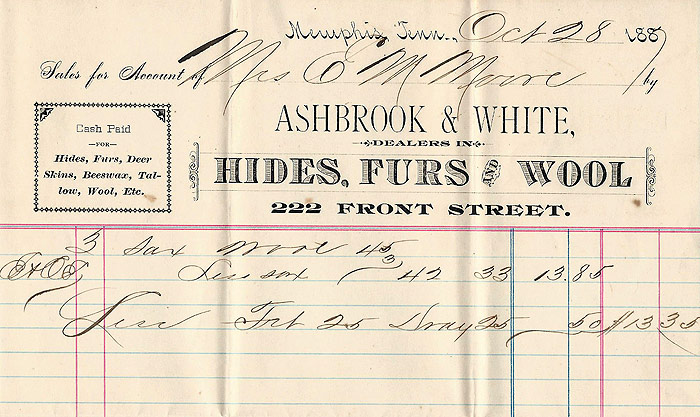 Memphis, Tenn., Oct 28 1887
Sales for Account of Mrs E M Moore by
Cash Paid
—FOR—
Hides, Furs, Deer
Skins, Beeswax, Tal-
low, Wool, Etc.
ASHBROOK & WHITE,
DEALERS IN
HIDES, FURS AND WOOL
222 FRONT STREET.
3 Sax Wool 45
E & OE Less sax 3 42 33 13.85
Less Frt 25 Dray 25 50 $13 35